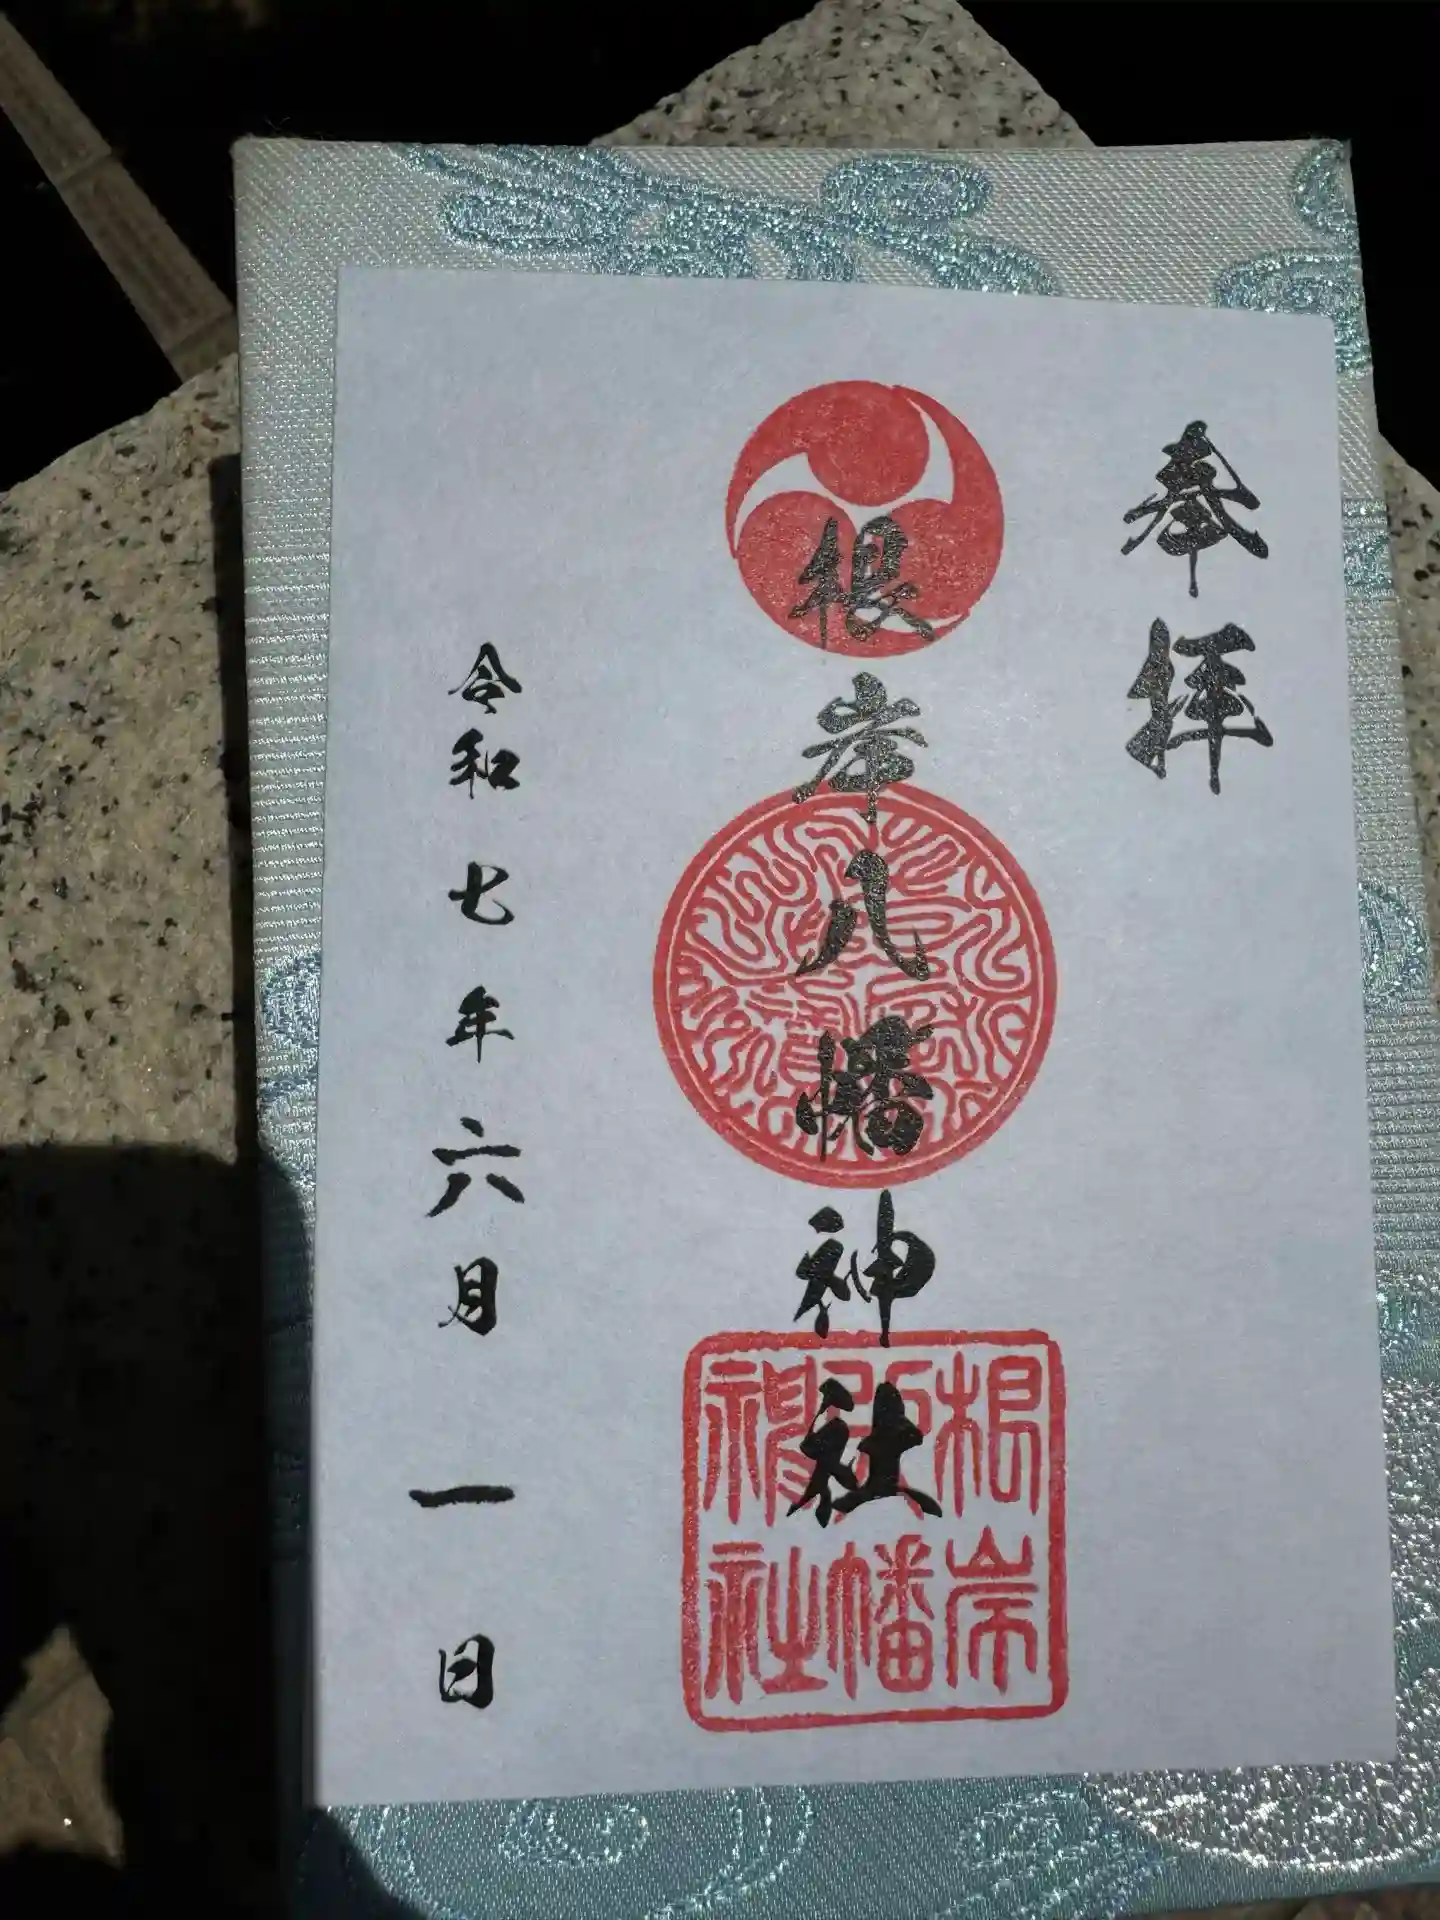 奉拝
根岸八幡神社
令和七年六月一日
根岸
八幡
神社